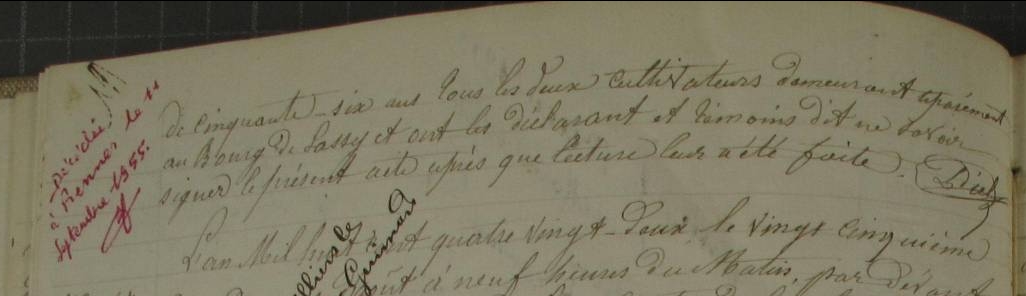 Décédée
à Rennes le 11
Septembre 1955.
de cinquante-six ans tous les deux cultivateurs demeurant séparément
au Bourg de Sassy et ont les déclarant et témoins dit ne savoir
signer le présent acte après que lecture leur a été faite.
L'an Mil huit cent quatre vingt-Deux le vingt cinquième
Guimard
août à neuf heures du Matin, par devant